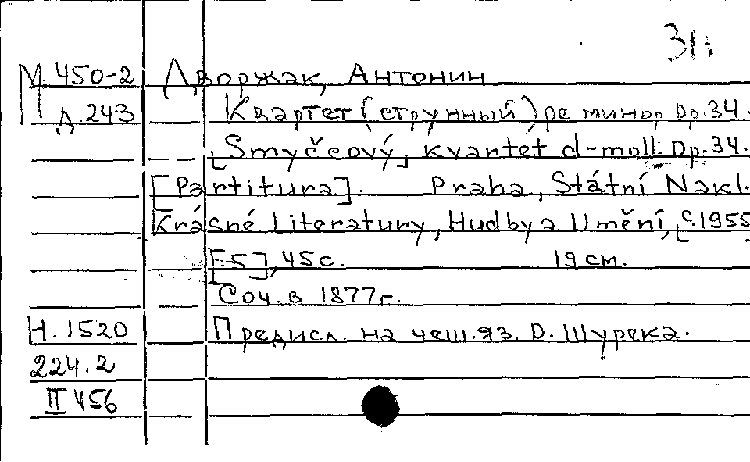 31:
М 450-2 Дворжак, Антонин
Д.243 Квартет (струнный) ре минор Op.34.
[Smyčcový] kvartet d-moll. Op.34.
[Partitura]. Praha, Státní Nakl.
Krásné Literatury, Hudby a Umění, [c.1955
[5], 45 с. 19 см.
Соч. в 1877г.
Н.1520 Предисл. на чеш.яз. О. Шурека.
224.2
II 456